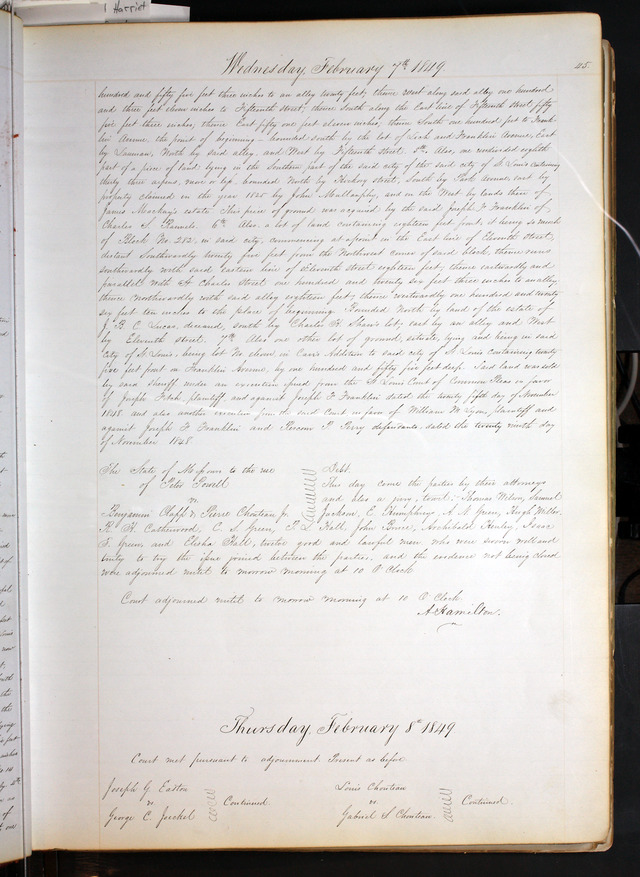 Harriet
Wednesday, February 7th 1849
45
hundred and fifty five feet three inches to an alley twenty feet; thence West along said alley one hundred
and three feet eleven inches to Fifteenth Street; thence South along the East line of Fifteenth Street fifty
five feet three inches; thence East fifty one feet eleven inches, thence South one hundred feet to Frank-
lin Avenue, the point of beginning — bounded south by the lot of and Franklin Avenue, East
by, North by said alley and West by Fifteenth Street. 5th Also, one undivided eighth
part of a piece of land lying in the Southern part of the said city of the said city of St Louis containing
thirty three arpens, more or less, bounded North by Hickory street, South by Park Avenue, east by
property claimed in the year 1825 by John Mullanphy, and in the West by lands then of
James Mackay's estate. This piece of ground was acquired by the said Joseph F Franklin of
Charles S. Rannels. 6th Also a lot of land containing eighteen feet front, it being so much
of Block No. 282 in said city, commencing at a point in the East line of Eleventh Street,
distant Southwardly twenty five feet from the Northwest corner of said block, thence runs
southwardly with said eastern line of Eleventh street eighteen feet; thence eastwardly and
parallel with St Charles street one hundred and twenty six feet three inches to an alley
thence northwardly with said alley eighteen feet; thence westwardly one hundred and twenty
six feet ten inches to the place of beginning. Bounded North by land of the estate of
J. B. C. Lucas, deceased, south by Charles H. Shaw's lot, east by an alley and West
by Eleventh street. 7th Also one other lot of ground, situate, lying and being in said
City of St Louis, being lot No eleven in Carr's Addition to said city of St Louis containing twenty
five feet front on Franklin Avenue, by one hundred and fifty five feet deep. Said land was sold
by said sheriff under an execution issued from the St Louis Court of Common Pleas in favor
of Joseph Fitch, plaintiff, and against Joseph F Franklin dated the twenty fifth day of November
1848 and also another execution from the said Court in favor of William M Lyon, plaintiff and
against Joseph F Franklin and P. Perry defendants, dated the twenty ninth day
of November 1848
The State of Missouri to the use
of Peter Powell
vs
Benjamin Clapp & Pierre Chouteau Jr.
Debt.
This day come the parties by their attorneys
and also a jury, to wit; Thomas Wilson, Samuel
Jackson, E. Humphrey, A. N. Green, Hugh Miller,
R. H. Catherwood, C. S. Green, P L Hall, John Bruce, Archibald, Isaac
T. Green, and Elisha Hall, twelve good and lawful men who were sworn well and
truly to try the issue joined between the parties, and the evidence not being closed
were adjourned until to morrow morning at 10 O Clock
Court adjourned until to morrow morning at 10 O Clock
A. Hamilton.
Thursday, February 8th 1849
Court met pursuant to adjournment Present as before
Joseph G Easton
vs
George C. Jeckel
Continued.
Louis Chouteau
vs
Gabriel S Chouteau.
Continued.